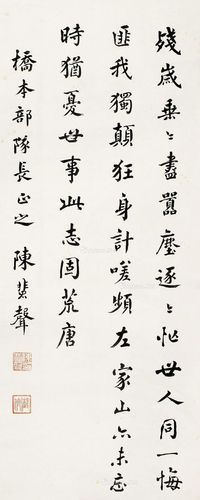 殘歲乘〻盡囂塵逐〻忙世人同一悔
匪我獨顛狂身計嗟頻左家山亦未忘
時猶憂世事此志固荒唐
橋本部隊長正之 陳蜚聲